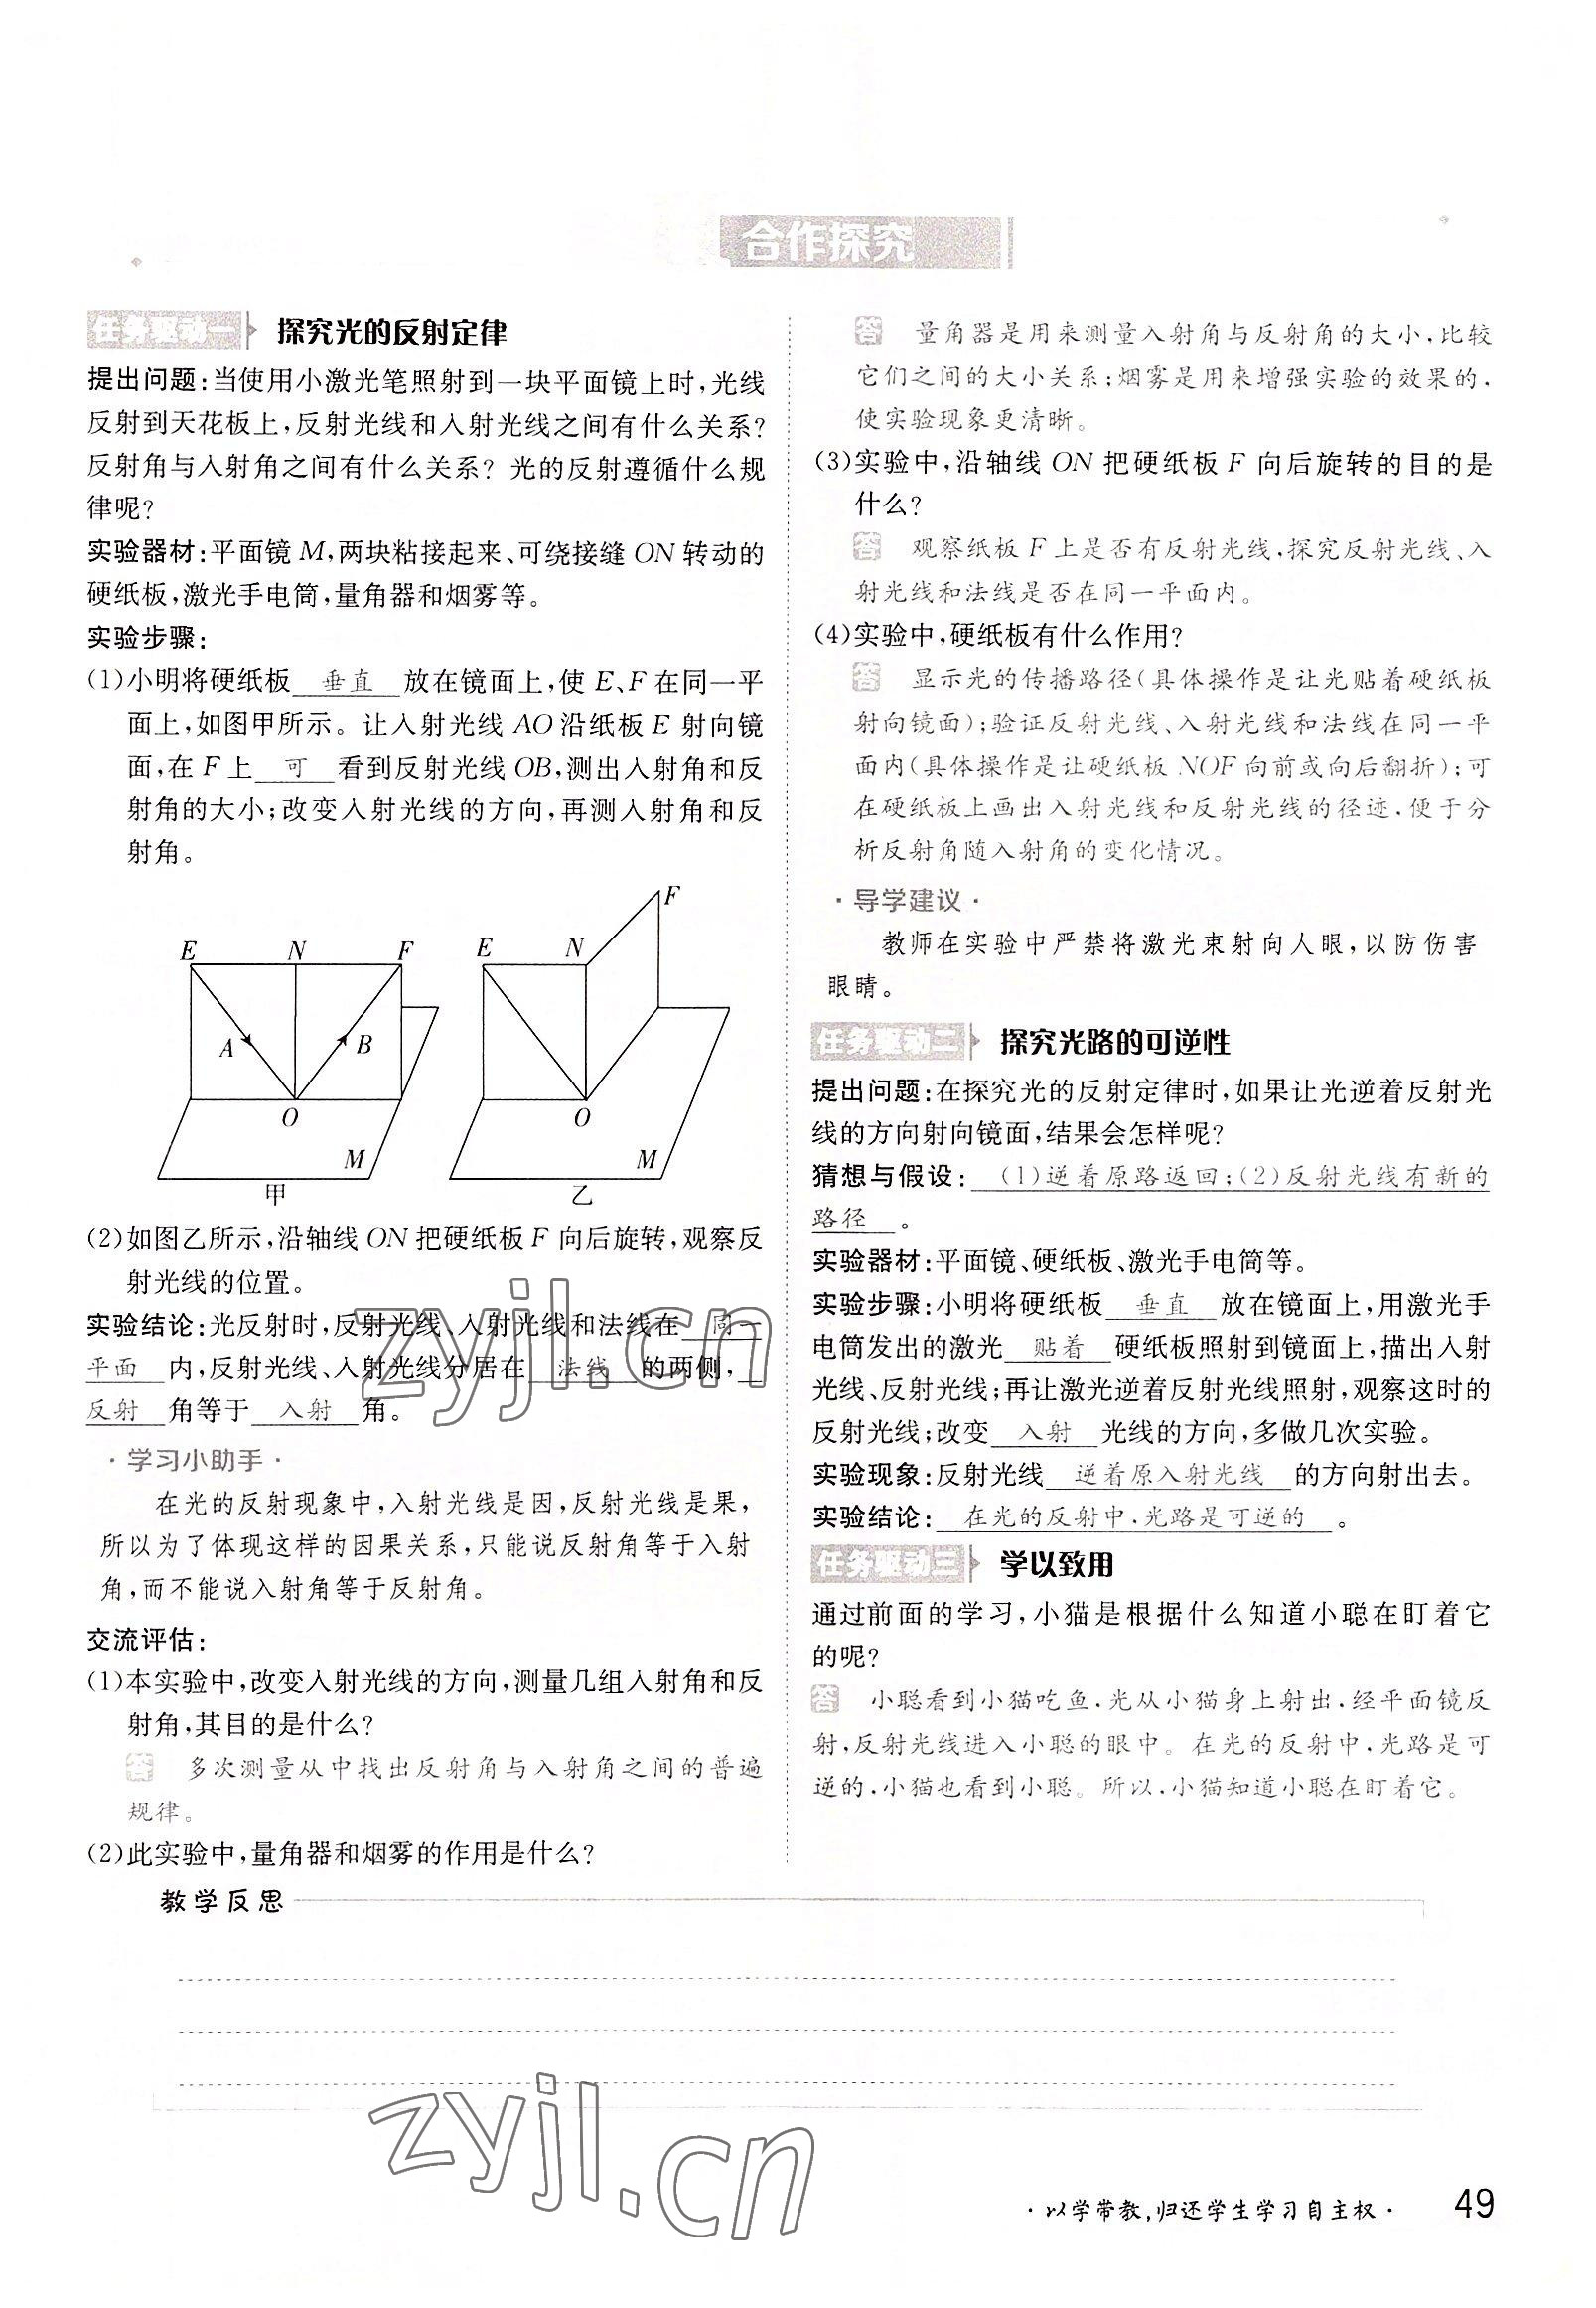 合作探究
任务驱动一 探究光的反射定律
提出问题:当使用小激光笔照射到一块平面镜上时,光线
反射到天花板上,反射光线和入射光线之间有什么关系?
反射角与入射角之间有什么关系? 光的反射遵循什么规
律呢?
实验器材:平面镜 M,两块粘接起来、可绕接缝 ON 转动的
硬纸板,激光手电筒,量角器和烟雾等。
实验步骤:
(1)小明将硬纸板 垂直 放在镜面上,使 E、F 在同一平
面上,如图甲所示。让入射光线 AO 沿纸板 E 射向镜
面,在 F 上 可 看到反射光线 OB,测出入射角和反
射角的大小;改变入射光线的方向,再测入射角和反
射角。
E N F
A B
O
M
甲
E N F
O
M
乙
(2)如图乙所示,沿轴线 ON 把硬纸板 F 向后旋转,观察反
射光线的位置。
实验结论:光反射时,反射光线、入射光线和法线在 同一
平面 内,反射光线、入射光线分居在 法线 的两侧,
反射 角等于 入射 角。
·学习小助手·
在光的反射现象中,入射光线是因,反射光线是果,
所以为了体现这样的因果关系,只能说反射角等于入射
角,而不能说入射角等于反射角。
交流评估:
(1)本实验中,改变入射光线的方向,测量几组入射角和反
射角,其目的是什么?
答 多次测量从中找出反射角与入射角之间的普遍
规律。
(2)此实验中,量角器和烟雾的作用是什么?
答 量角器是用来测量入射角与反射角的大小,比较
它们之间的大小关系;烟雾是用来增强实验的效果的,
使实验现象更清晰。
(3)实验中,沿轴线 ON 把硬纸板 F 向后旋转的目的是
什么?
答 观察纸板 F 上是否有反射光线,探究反射光线、入
射光线和法线是否在同一平面内。
(4)实验中,硬纸板有什么作用?
答 显示光的传播路径(具体操作是让光贴着硬纸板
射向镜面);验证反射光线、入射光线和法线在同一平
面内(具体操作是让硬纸板 NOF 向前或向后翻折);可
在硬纸板上画出入射光线和反射光线的径迹,便于分
析反射角随入射角的变化情况。
·导学建议·
教师在实验中严禁将激光束射向人眼,以防伤害
眼睛。
任务驱动二 探究光路的可逆性
提出问题:在探究光的反射定律时,如果让光逆着反射光
线的方向射向镜面,结果会怎样呢?
猜想与假设: (1)逆着原路返回;(2)反射光线有新的
路径 。
实验器材:平面镜、硬纸板、激光手电筒等。
实验步骤:小明将硬纸板 垂直 放在镜面上,用激光手
电筒发出的激光 贴着 硬纸板照射到镜面上,描出入射
光线、反射光线;再让激光逆着反射光线照射,观察这时的
反射光线;改变 入射 光线的方向,多做几次实验。
实验现象:反射光线 逆着原入射光线 的方向射出去。
实验结论: 在光的反射中,光路是可逆的 。
任务驱动三 学以致用
通过前面的学习,小猫是根据什么知道小聪在盯着它
的呢?
答 小聪看到小猫吃鱼,光从小猫身上射出,经平面镜反
射,反射光线进入小聪的眼中。在光的反射中,光路是可
逆的,小猫也看到小聪。所以,小猫知道小聪在盯着它。
教学反思
zyjl.cn
zyjl.cn
·以学带教,归还学生学习自主权· 49